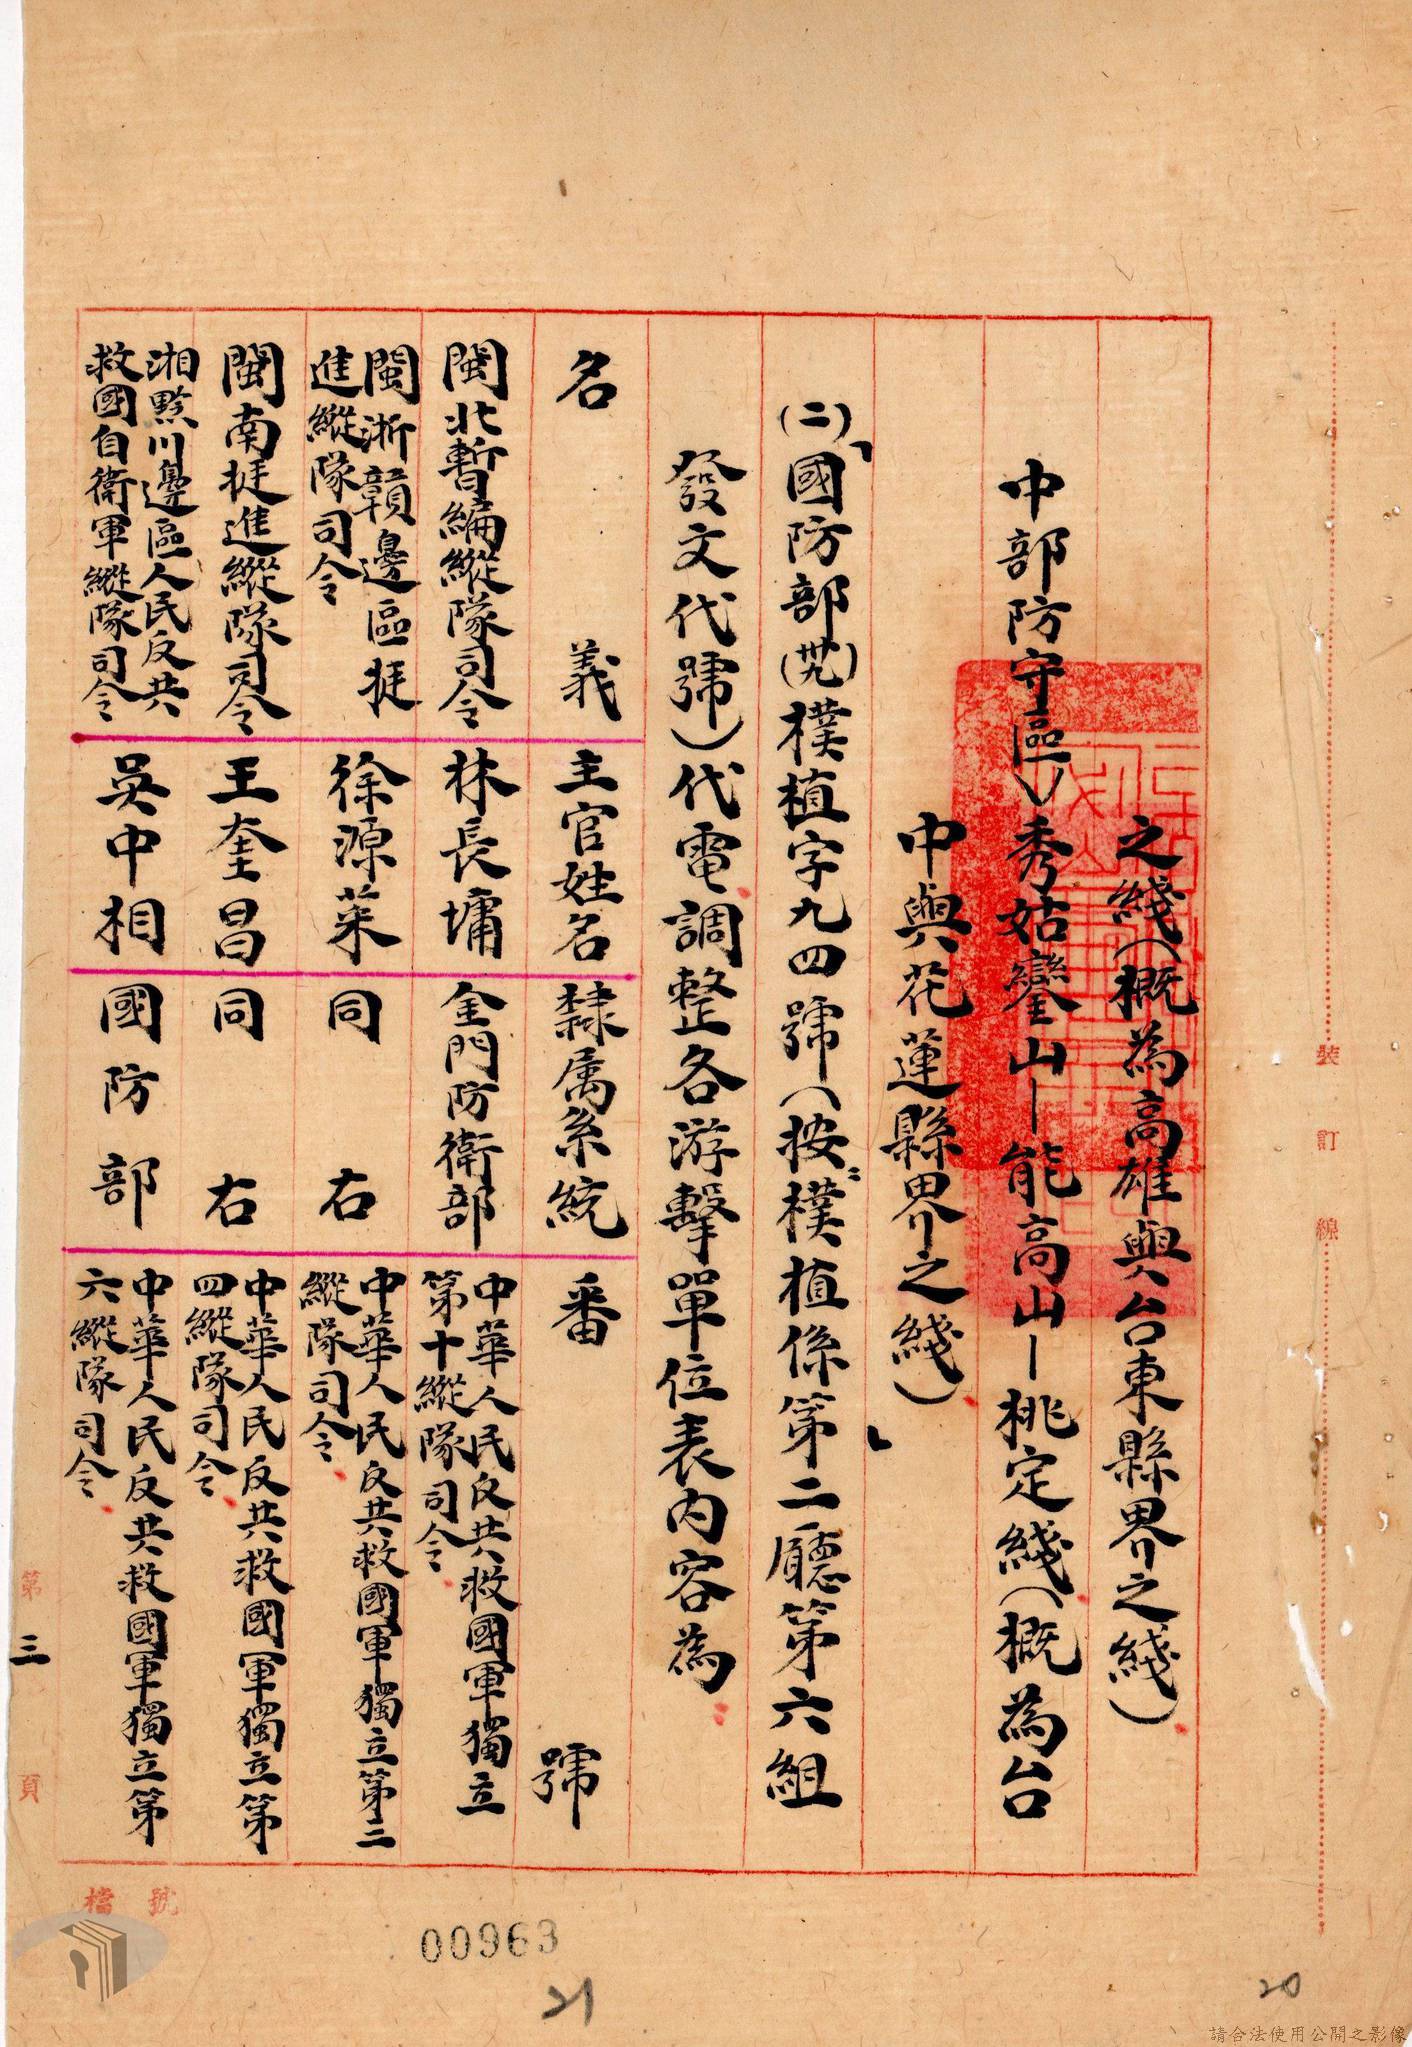 之綫（概為高雄與台東縣界之綫）
中部防守區）秀姑巒山－能高山－桃定綫（概為台
中與花蓮縣界之綫）」
(二)「國防部(卅九)樸植字九四號（按：樸植係第二廳第六組
發文代號）代電調整各游擊單位表內容為
名義 主官姓名 隸属系統 番號
閩北暫編縱隊司令 林長墉 金門防衛部 中華人民反共救國軍獨立
第十縱隊司令
閩浙贛邊區挺
進縱隊司令 徐源菜 同右 中華人民反共救國軍獨立第三
縱隊司令
閩南挺進縱隊司令 王奎昌 同右 中華人民反共救國軍獨立第
四縱隊司令
湘黔川邊區人民反共
救國自衛軍縱隊司令 吳中相 國防部 中華人民反共救國軍獨立第
六縱隊司令
裝訂線
第三頁
檔號
00963
21
20
請合法使用公開之影像